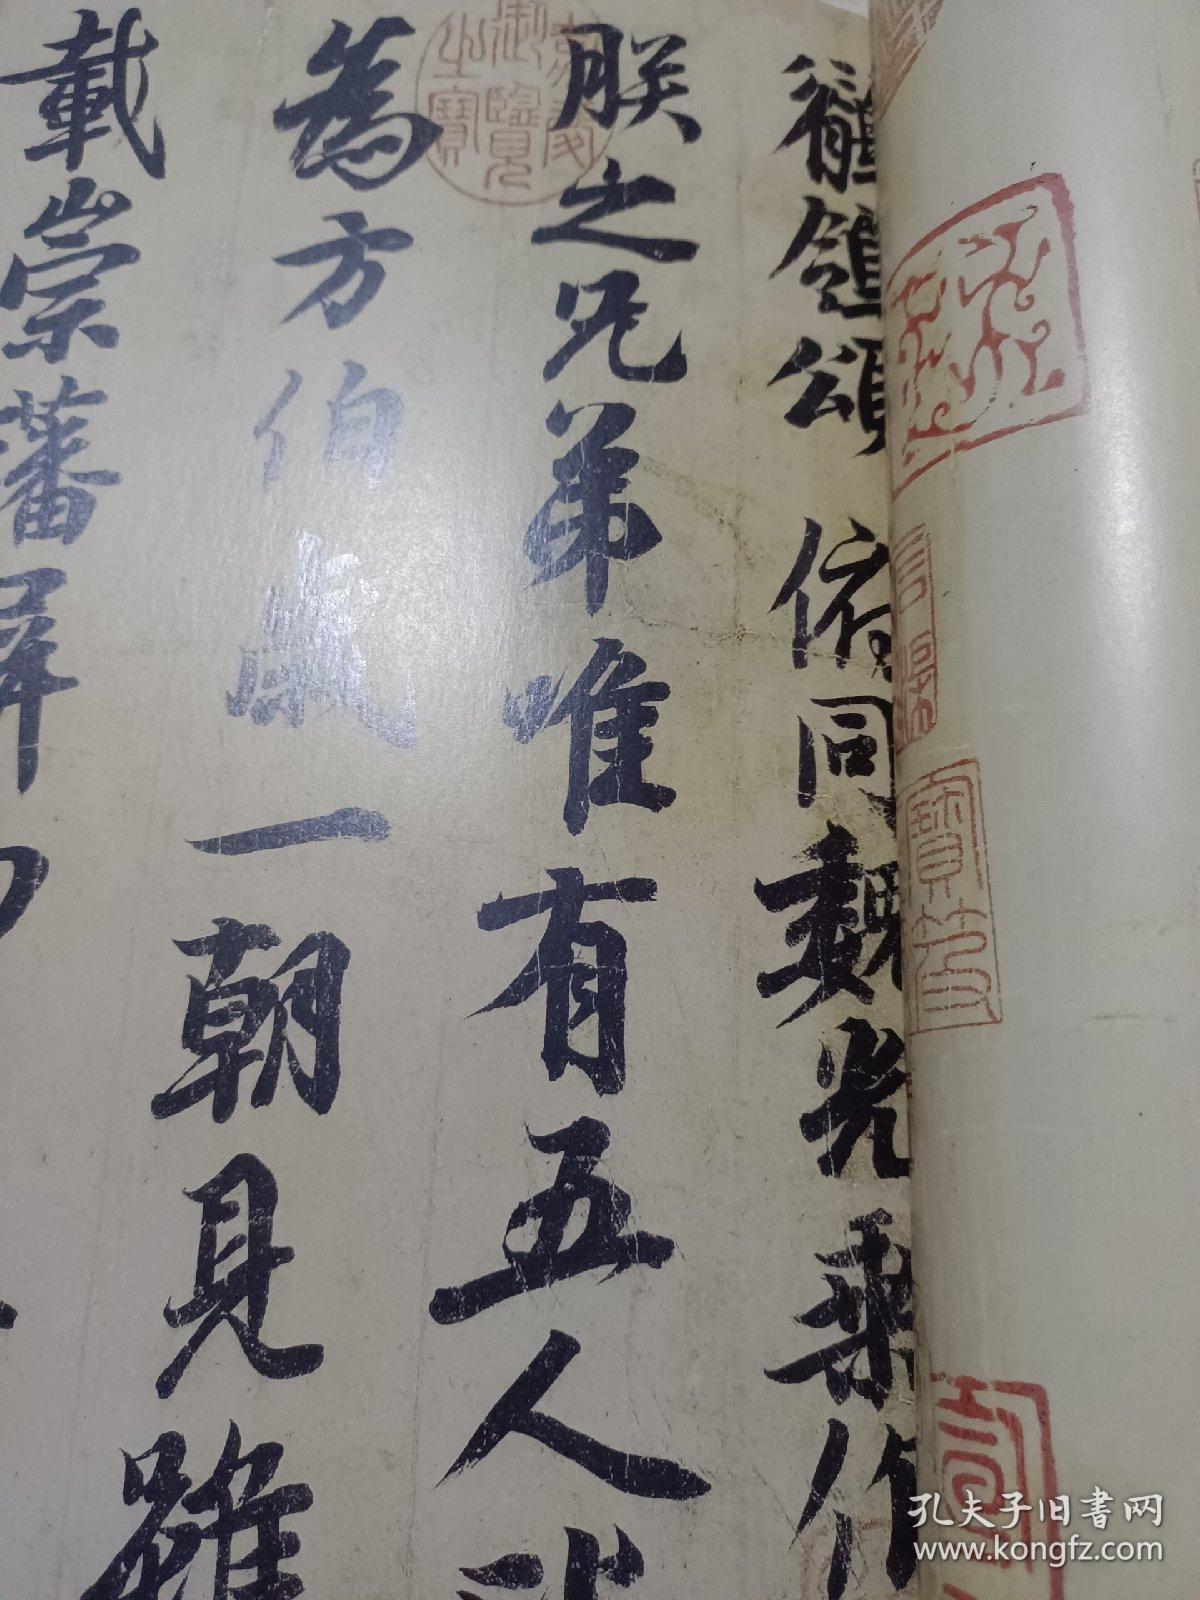 鶺鴒頌 俯同魏光乘作
朕之兄弟唯有五人
為方伯歲一朝見雖
載崇藩屏
嘉慶御覽之寶
寶笈
孔夫子旧书网
www.kongfz.com